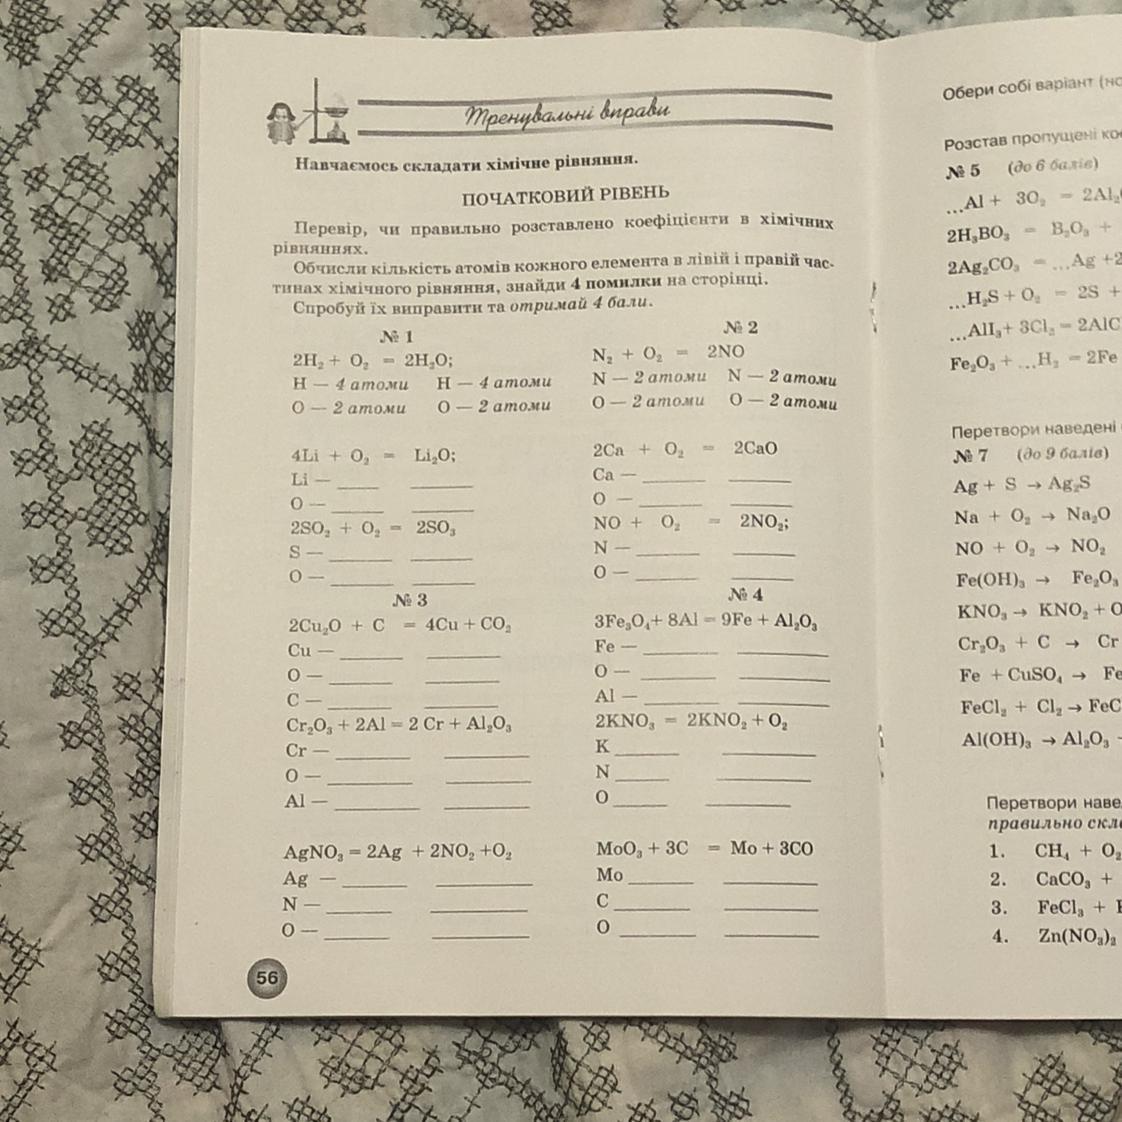 Тренувальні вправи
Навчаємось складати хімічне рівняння.
ПОЧАТКОВИЙ РІВЕНЬ
Перевір, чи правильно розставлено коефіцієнти в хімічних
рівняннях.
Обчисли кількість атомів кожного елемента в лівій і правій час-
тинах хімічного рівняння, знайди 4 помилки на сторінці.
Спробуй їх виправити та отримай 4 бали.
№ 1
2H₂ + O₂ = 2H₂O;
H — 4 атоми H — 4 атоми
O — 2 атоми O — 2 атоми
4Li + O₂ = Li₂O;
Li — ____ ____
O — ____ ____
2SO₂ + O₂ = 2SO₃
S — ____ ____
O — ____ ____
№ 2
N₂ + O₂ = 2NO
N — 2 атоми N — 2 атоми
O — 2 атоми O — 2 атоми
2Ca + O₂ = 2CaO
Ca — ____ ____
O — ____ ____
NO + O₂ = 2NO₂;
N — ____ ____
O — ____ ____
№ 3
2Cu₂O + C = 4Cu + CO₂
Cu — ____ ____
O — ____ ____
C — ____ ____
Cr₂O₃ + 2Al = 2 Cr + Al₂O₃
Cr — ____ ____
O — ____ ____
Al — ____ ____
AgNO₃ = 2Ag + 2NO₂ +O₂
Ag — ____ ____
N — ____ ____
O — ____ ____
№ 4
3Fe₃O₄+ 8Al = 9Fe + Al₂O₃
Fe — ____ ____
O — ____ ____
Al — ____ ____
2KNO₃ = 2KNO₂ + O₂
K ____ ____
N ____ ____
O ____ ____
MoO₃ + 3C = Mo + 3CO
Mo ____ ____
C ____ ____
O ____ ____
56
Обери собі варіант
Розстав пропущені
№ 5 (до 6 балів)
...Al + 3O₂ = 2Al₂
2H₃BO₃ = B₂O₃ +
2Ag₂CO₃ = ...Ag +2
...H₂S + O₂ = 2S +
...AlI₃+ 3Cl₂ = 2AlC
Fe₂O₃ + ...H₂ = 2Fe
Перетвори наведені
№ 7 (до 9 балів)
Ag + S → Ag₂S
Na + O₂ → Na₂O
NO + O₂ → NO₂
Fe(OH)₃ → Fe₂O₃
KNO₃ → KNO₂ + O
Cr₂O₃ + C → Cr
Fe + CuSO₄ → Fe
FeCl₂ + Cl₂ → FeC
Al(OH)₃ → Al₂O₃
Перетвори
правильно
1. CH₄ + O₂
2. CaCO₃ +
3. FeCl₃ +
4. Zn(NO₃)₂